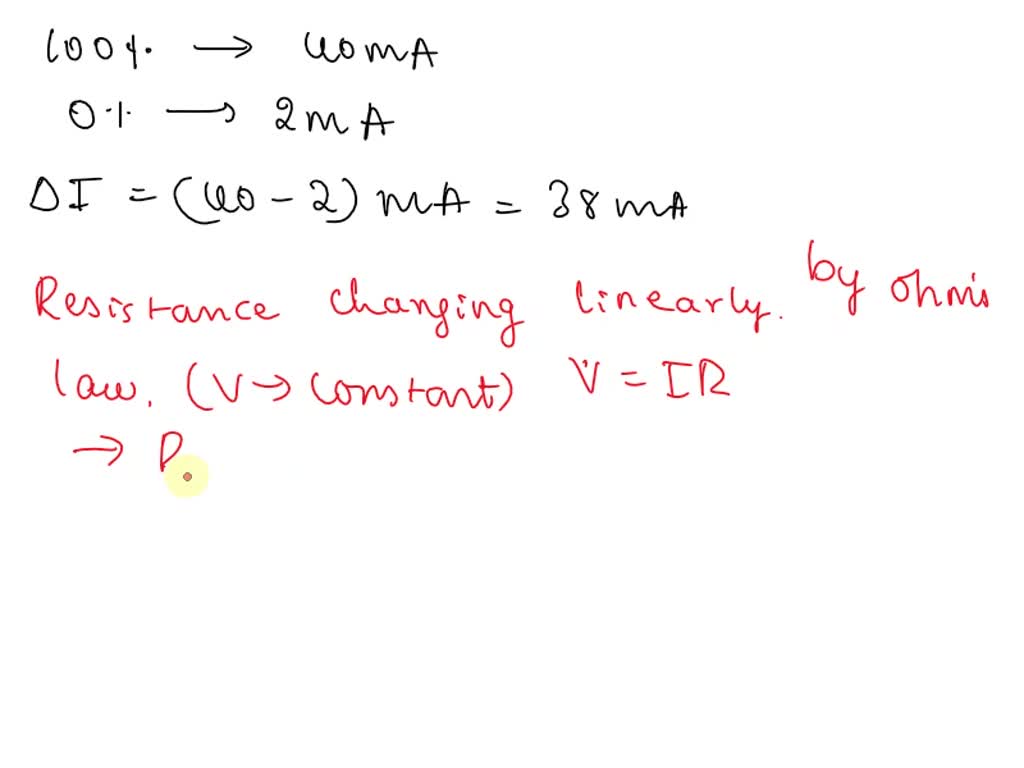 100% → 40mA
0% → 2mA
ΔI = (40 - 2) mA = 38 mA
Resistance changing linearly. by ohm's
law. (V → constant) V = IR
→ R